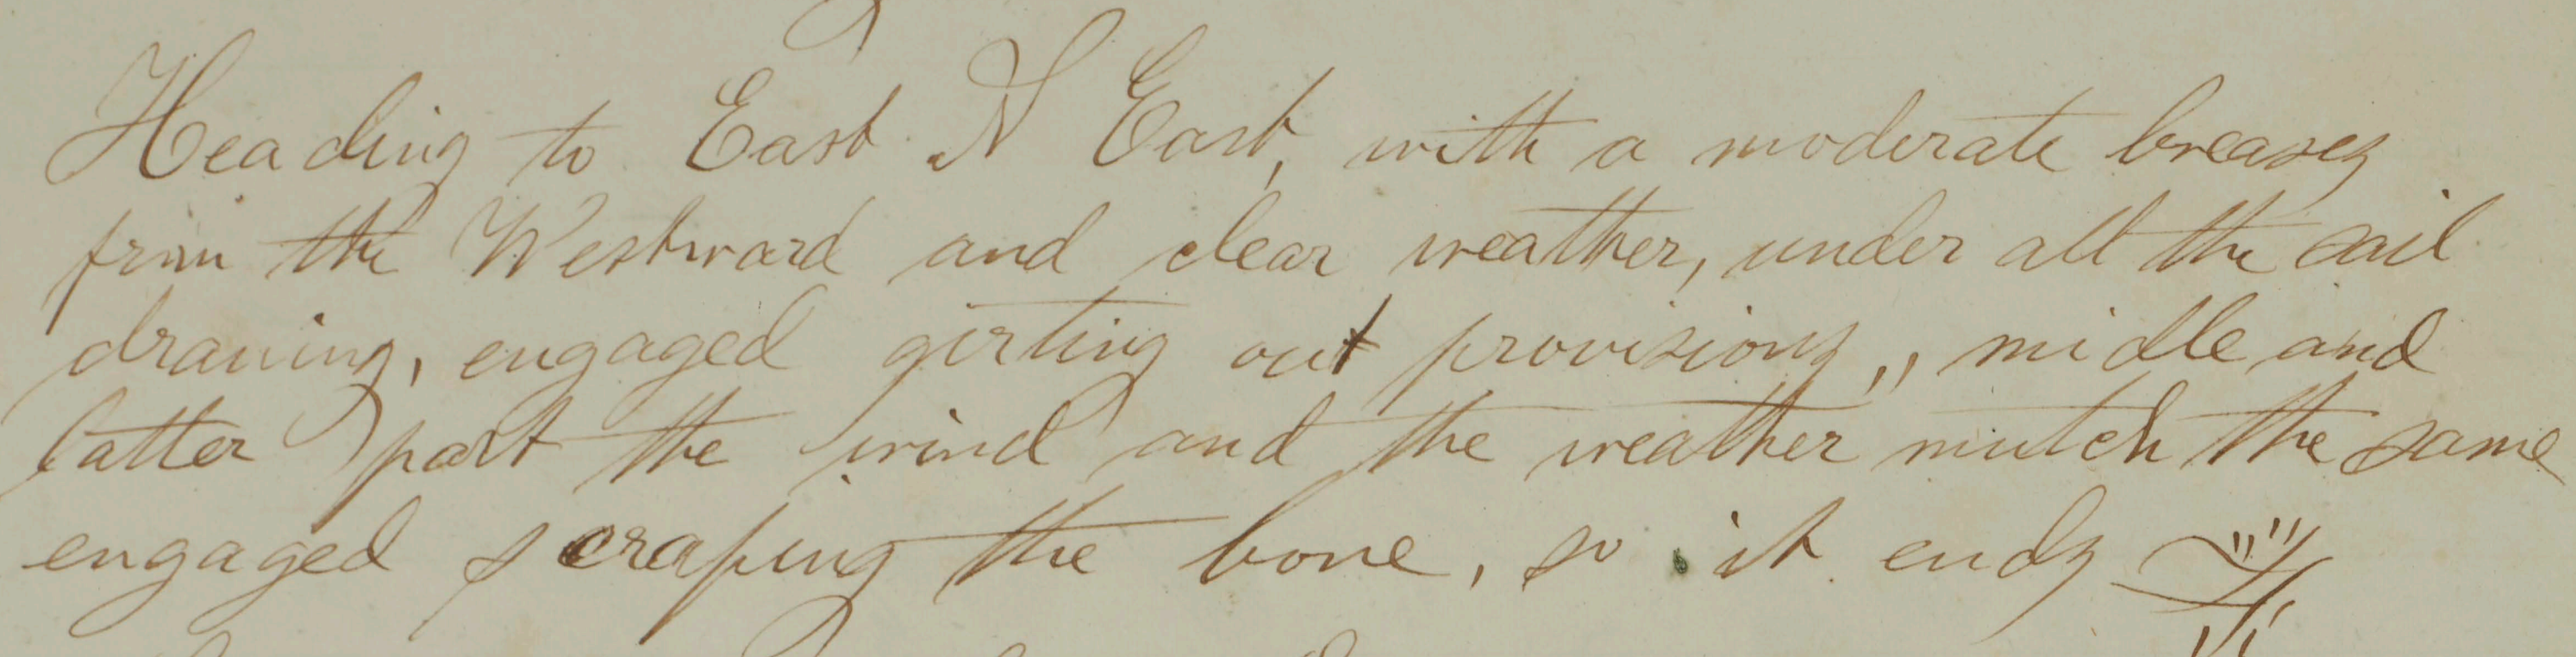 Heading to East N East, with a moderate breases
from the Westward and clear weather, under all the sail
drawing, engaged girting out provisions,, midle and
latter part the wind and the weather mutch the same
engaged scraping the bone, so it ends